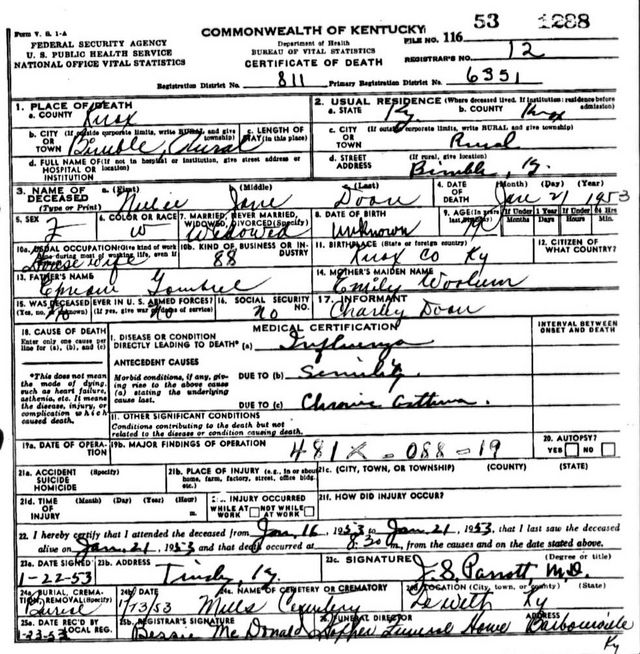 Form V. S. 1-A
COMMONWEALTH OF KENTUCKY
53 1288
FILE NO. 116
FEDERAL SECURITY AGENCY
U. S. PUBLIC HEALTH SERVICE
NATIONAL OFFICE VITAL STATISTICS
Department of Health
BUREAU OF VITAL STATISTICS
CERTIFICATE OF DEATH
REGISTRAR'S NO. 12
Registration District No. 811 Primary Registration District No. 6351
1. PLACE OF DEATH
a. COUNTY Knox
2. USUAL RESIDENCE (Where deceased lived. If institution: residence before admission)
a. STATE Ky. b. COUNTY Knox
b. CITY (If outside corporate limits, write RURAL and give township)
OR TOWN Bimble, Rural
c. LENGTH OF STAY (in this place)
c. CITY (If outside corporate limits, write RURAL and give township)
OR TOWN Rural
d. FULL NAME OF (If not in hospital or institution, give street address or location)
HOSPITAL OR INSTITUTION
d. STREET ADDRESS (If rural, give location)
Bimble, Ky.
3. NAME OF DECEASED (Type or Print)
a. (First) (Middle) (Last)
Jane Doan
4. DATE OF DEATH (Month) (Day) (Year)
Jan 21 1953
5. SEX F
6. COLOR OR RACE W
7. MARRIED, NEVER MARRIED, WIDOWED, DIVORCED (Specify) Widowed
8. DATE OF BIRTH Unknown
9. AGE (In years last birthday) If Under 1 Year If Under 24 Hrs
Months Days Hours Min.
10a. USUAL OCCUPATION (Give kind of work done during most of working life, even if retired)
House wife
10b. KIND OF BUSINESS OR INDUSTRY
88
11. BIRTHPLACE (State or foreign country)
Knox Co Ky
12. CITIZEN OF WHAT COUNTRY?
13. FATHER'S NAME
14. MOTHER'S MAIDEN NAME
Emily Woolum
15. WAS DECEASED EVER IN U. S. ARMED FORCES?
(Yes, no, or unknown) (If yes, give war or dates of service)
No No
16. SOCIAL SECURITY NO.
No
17. INFORMANT
Charley Doan
18. CAUSE OF DEATH
Enter only one cause per line for (a), (b), and (c)
MEDICAL CERTIFICATION
INTERVAL BETWEEN ONSET AND DEATH
I. DISEASE OR CONDITION DIRECTLY LEADING TO DEATH* (a) Influenza
*This does not mean the mode of dying, such as heart failure, asthenia, etc. It means the disease, injury, or complication which caused death.
ANTECEDENT CAUSES
Morbid conditions, if any, giving rise to the above cause (a) stating the underlying cause last.
DUE TO (b) Senility
DUE TO (c) Chronic Asthma.
II. OTHER SIGNIFICANT CONDITIONS
Conditions contributing to the death but not related to the disease or condition causing death.
19a. DATE OF OPERATION
19b. MAJOR FINDINGS OF OPERATION
481X - 088 - 19
20. AUTOPSY?
YES NO
21a. ACCIDENT SUICIDE HOMICIDE (Specify)
21b. PLACE OF INJURY (e.g., in or about home, farm, factory, street, office bldg., etc.)
21c. (CITY, TOWN, OR TOWNSHIP) (COUNTY) (STATE)
21d. TIME OF INJURY (Month) (Day) (Year) (Hour) m.
INJURY OCCURRED
WHILE AT WORK NOT WHILE AT WORK
21f. HOW DID INJURY OCCUR?
22. I hereby certify that I attended the deceased from Jan. 16, 1953 to Jan. 21, 1953, that I last saw the deceased
alive on Jan. 21, 1953 and that death occurred at 8:30 m., from the causes and on the date stated above.
23a. DATE SIGNED
1-22-53
23b. ADDRESS
Ky.
23c. SIGNATURE (Degree or title)
Parrott M.D.
24a. BURIAL, CREMATION, REMOVAL (Specify)
Burial
24b. DATE
1/23/53
24c. NAME OF CEMETERY OR CREMATORY
Mills Cemetery
24d. LOCATION (City, town, or county) (State)
Dewitt Ky
25a. DATE REC'D BY LOCAL REG.
1-23-53
25b. REGISTRAR'S SIGNATURE
Bessie McDonald
26. FUNERAL DIRECTOR ADDRESS
Hopper Funeral Home Barbourville
Ky